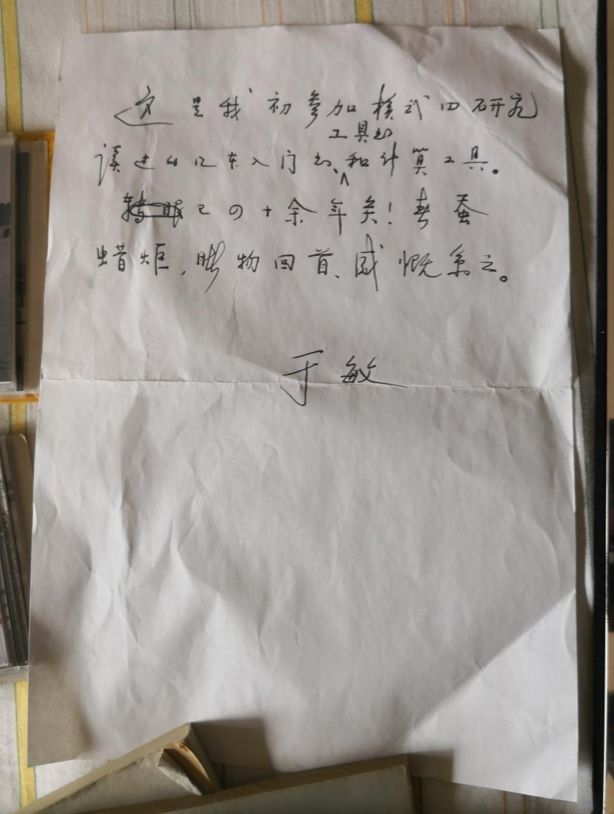 这是我初参加模式的研究
工具和
读过的几本入门的、和计算工具。
转眼已四十余年矣!春蚕
蜡炬,睹物回首,感慨系之。
于敏